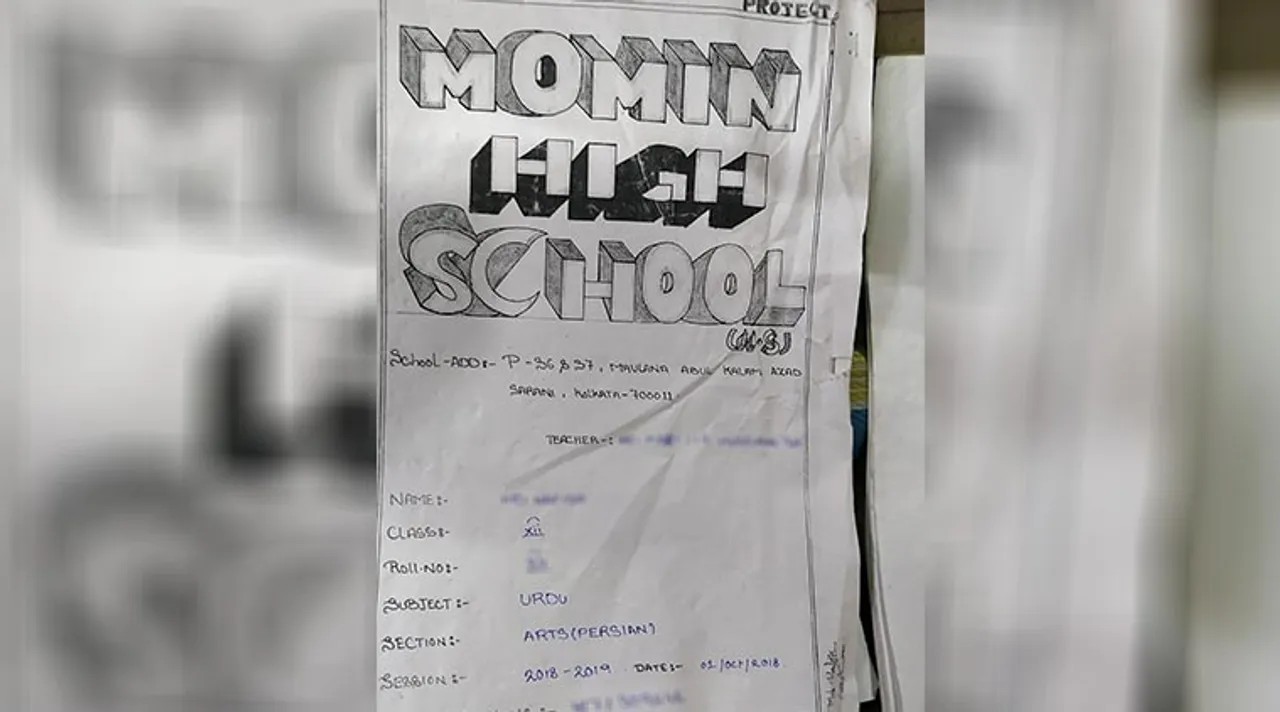 PROJECT
MOMIN
HIGH
SCHOOL
(H.S)
School-ADD:- P-36 & 37, MAULANA ABUL KALAM AZAD
SARANI, KOLKATA-700011.
TEACHER-:
NAME:-
CLASS:- xii
ROLL.NO:-
SUBJECT:- URDU
SECTION:- ARTS(PERSIAN)
SESSION:- 2018-2019 DATE:- 01/OCT/2018.